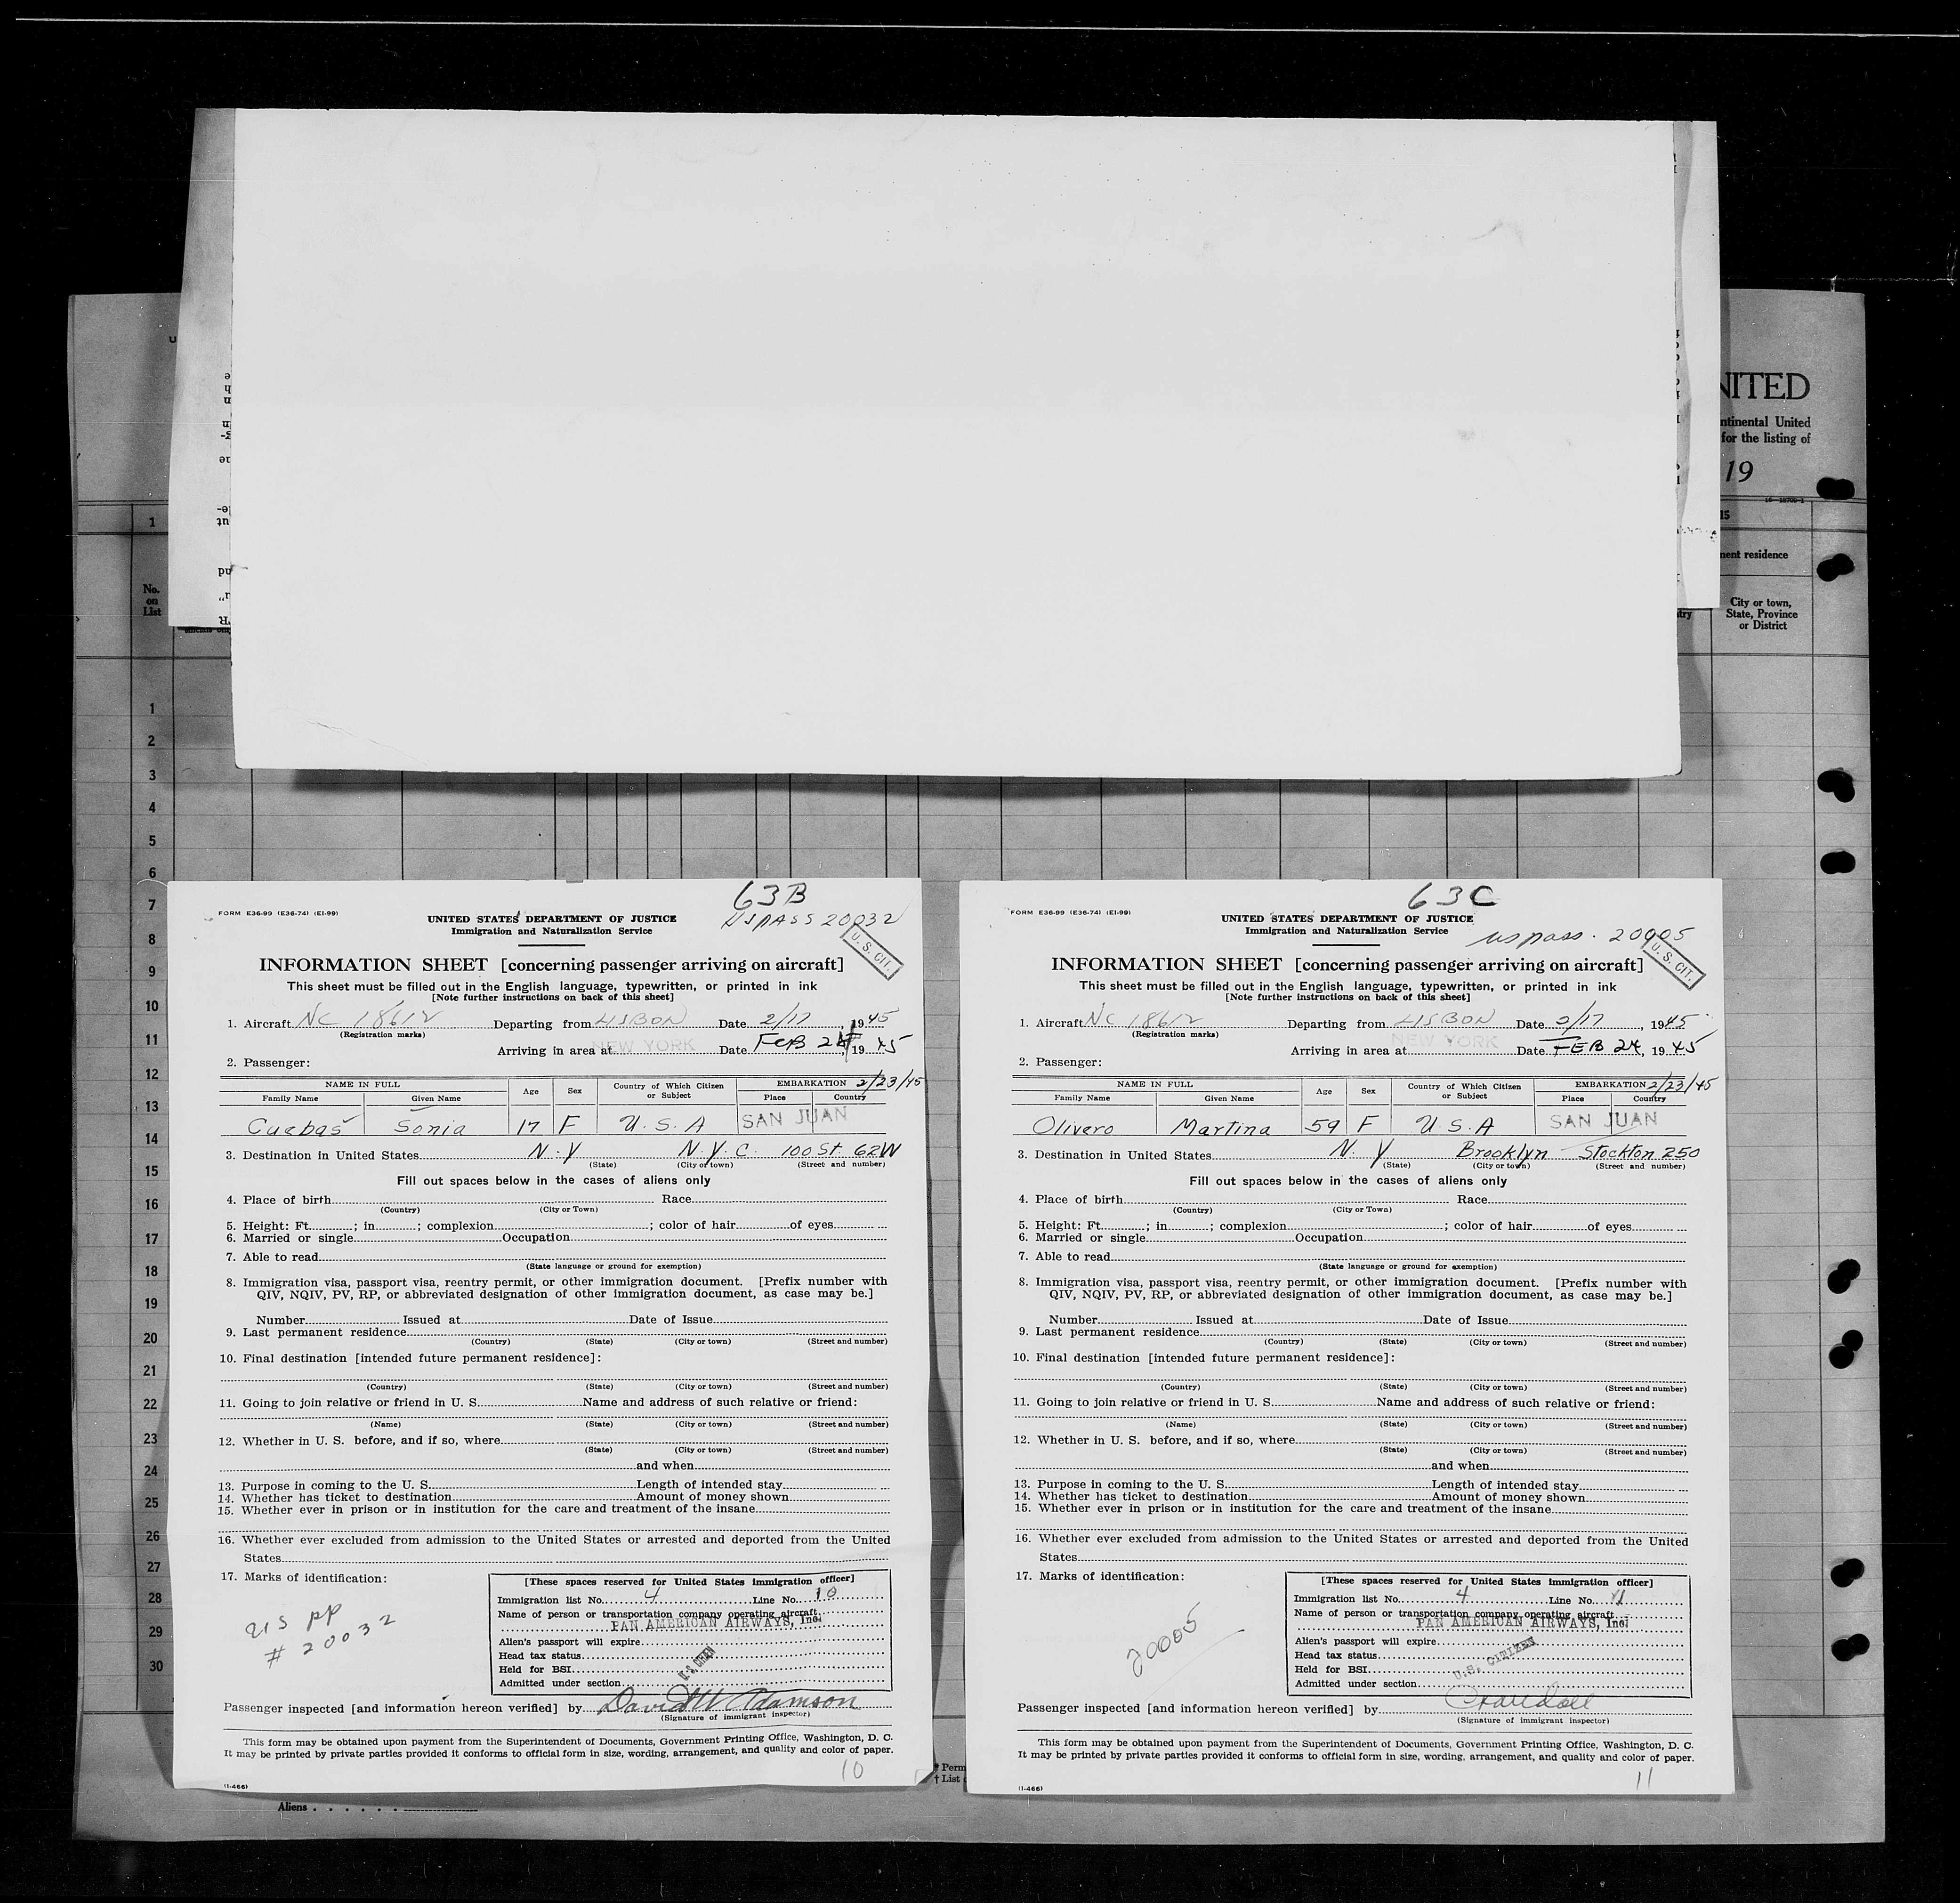 NITED
ntinental United
for the listing of
19
15
nent residence
City or town,
State, Province
or District
No.
on
List
1
1
2
3
4
5
6
7
8
9
10
11
12
13
14
15
16
17
18
19
20
21
22
23
24
25
26
27
28
29
30
63B
FORM E36-99 (E36-74) (E1-99)
UNITED STATES DEPARTMENT OF JUSTICE
US PASS 20032
Immigration and Naturalization Service
U. S. CIT.
INFORMATION SHEET [concerning passenger arriving on aircraft]
This sheet must be filled out in the English language, typewritten, or printed in ink
[Note further instructions on back of this sheet]
1. Aircraft NC 18612 Departing from LISBON Date 2/17, 1945
(Registration marks)
Arriving in area at NEW YORK Date FEB 24, 19 45
2. Passenger:
NAME IN FULL Age Sex Country of Which Citizen or Subject EMBARKATION 2/23/45
Family Name Given Name Place Country
Cuebas Sonia 17 F U. S. A SAN JUAN
3. Destination in United States N. Y N. Y. C. 100 St. 62W
(State) (City or town) (Street and number)
Fill out spaces below in the cases of aliens only
4. Place of birth Race
(Country) (City or Town)
5. Height: Ft. ; in ; complexion ; color of hair of eyes
6. Married or single Occupation
7. Able to read
(State language or ground for exemption)
8. Immigration visa, passport visa, reentry permit, or other immigration document. [Prefix number with
QIV, NQIV, PV, RP, or abbreviated designation of other immigration document, as case may be.]
Number Issued at Date of Issue
9. Last permanent residence
(Country) (State) (City or town) (Street and number)
10. Final destination [intended future permanent residence]:
(Country) (State) (City or town) (Street and number)
11. Going to join relative or friend in U. S. Name and address of such relative or friend:
(Name) (State) (City or town) (Street and number)
12. Whether in U. S. before, and if so, where
(State) (City or town) (Street and number)
and when
13. Purpose in coming to the U. S. Length of intended stay
14. Whether has ticket to destination Amount of money shown
15. Whether ever in prison or in institution for the care and treatment of the insane
16. Whether ever excluded from admission to the United States or arrested and deported from the United
States
17. Marks of identification:
US PP
# 20032
[These spaces reserved for United States immigration officer]
Immigration list No. 4 Line No. 10
Name of person or transportation company operating aircraft
PAN AMERICAN AIRWAYS, Inc.
Alien's passport will expire
Head tax status
Held for BSI
Admitted under section
Passenger inspected [and information hereon verified] by David W Adamson
(Signature of immigrant inspector)
This form may be obtained upon payment from the Superintendent of Documents, Government Printing Office, Washington, D. C.
It may be printed by private parties provided it conforms to official form in size, wording, arrangement, and quality and color of paper.
10
(I-466)
63C
FORM E36-99 (E36-74) (E1-99)
UNITED STATES DEPARTMENT OF JUSTICE
Immigration and Naturalization Service
us pass. 20005
U. S. CIT.
INFORMATION SHEET [concerning passenger arriving on aircraft]
This sheet must be filled out in the English language, typewritten, or printed in ink
[Note further instructions on back of this sheet]
1. Aircraft NC 18612 Departing from LISBON Date 2/17, 1945
(Registration marks)
Arriving in area at NEW YORK Date FEB 24, 19 45
2. Passenger:
NAME IN FULL Age Sex Country of Which Citizen or Subject EMBARKATION 2/23/45
Family Name Given Name Place Country
Olivero Martina 59 F U S. A SAN JUAN
3. Destination in United States N. Y Brooklyn Stockton 250
(State) (City or town) (Street and number)
Fill out spaces below in the cases of aliens only
4. Place of birth Race
(Country) (City or Town)
5. Height: Ft. ; in ; complexion ; color of hair of eyes
6. Married or single Occupation
7. Able to read
(State language or ground for exemption)
8. Immigration visa, passport visa, reentry permit, or other immigration document. [Prefix number with
QIV, NQIV, PV, RP, or abbreviated designation of other immigration document, as case may be.]
Number Issued at Date of Issue
9. Last permanent residence
(Country) (State) (City or town) (Street and number)
10. Final destination [intended future permanent residence]:
(Country) (State) (City or town) (Street and number)
11. Going to join relative or friend in U. S. Name and address of such relative or friend:
(Name) (State) (City or town) (Street and number)
12. Whether in U. S. before, and if so, where
(State) (City or town) (Street and number)
and when
13. Purpose in coming to the U. S. Length of intended stay
14. Whether has ticket to destination Amount of money shown
15. Whether ever in prison or in institution for the care and treatment of the insane
16. Whether ever excluded from admission to the United States or arrested and deported from the United
States
17. Marks of identification:
20005
[These spaces reserved for United States immigration officer]
Immigration list No. 4 Line No. 11
Name of person or transportation company operating aircraft
PAN AMERICAN AIRWAYS, Inc.
Alien's passport will expire
Head tax status
Held for BSI
U.S. CITIZEN
Admitted under section
Passenger inspected [and information hereon verified] by Crandall
(Signature of immigrant inspector)
This form may be obtained upon payment from the Superintendent of Documents, Government Printing Office, Washington, D. C.
It may be printed by private parties provided it conforms to official form in size, wording, arrangement, and quality and color of paper.
11
(I-466)
* Perm
† List
Aliens